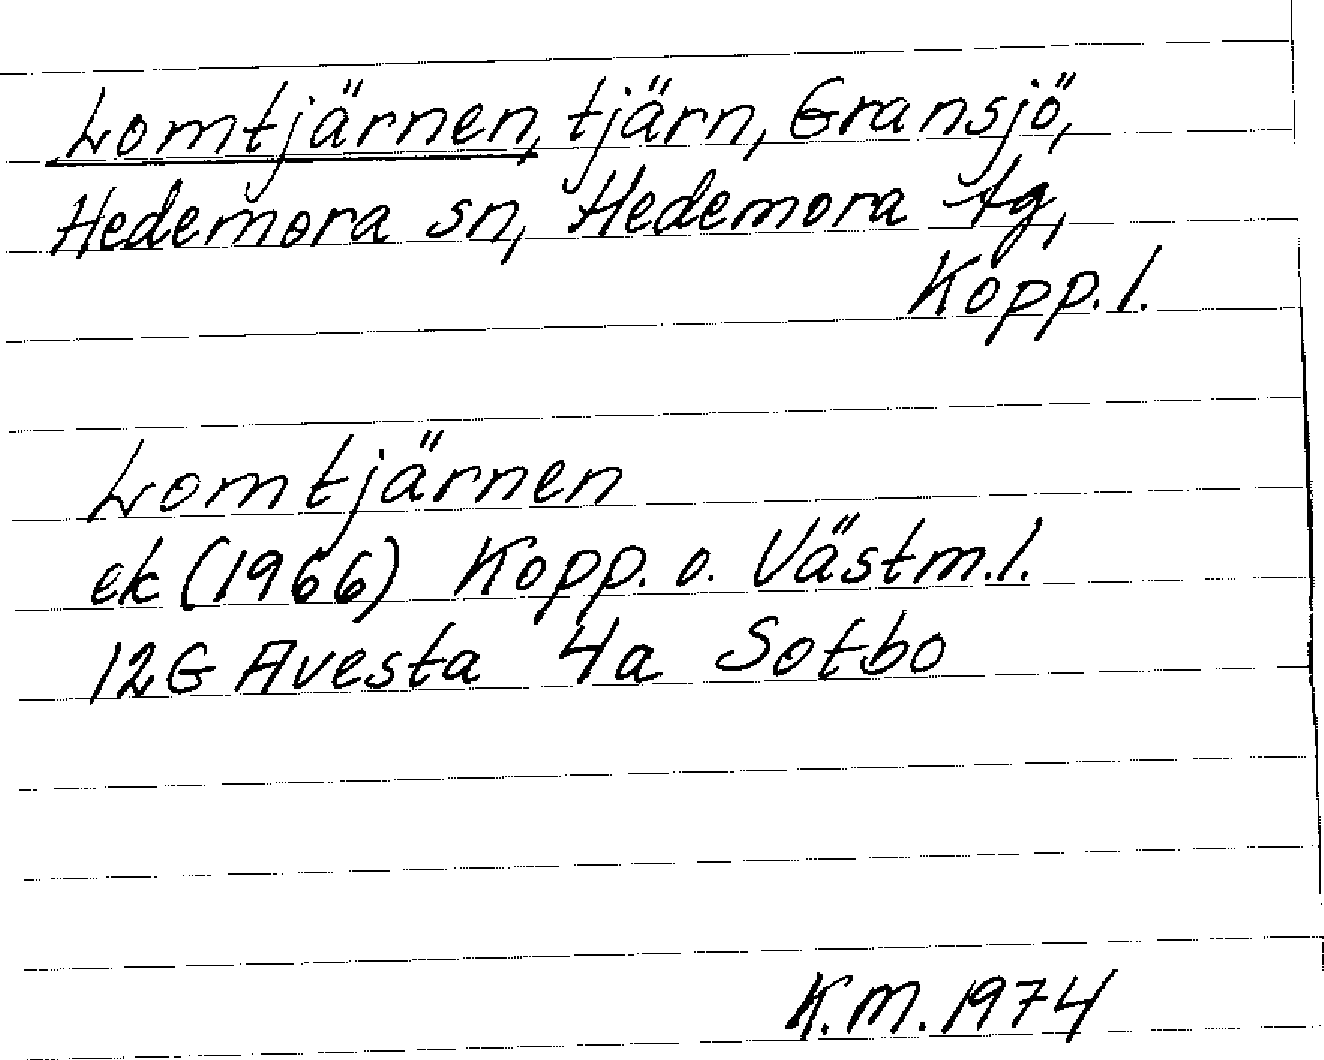 Lomtjärnen, tjärn, Gransjö,
Hedemora sn, Hedemora tg,
Kopp. l.
Lomtjärnen
ek (1966) Kopp. o. Västm. l.
12G Avesta 4a Sotbo
K.M. 1974